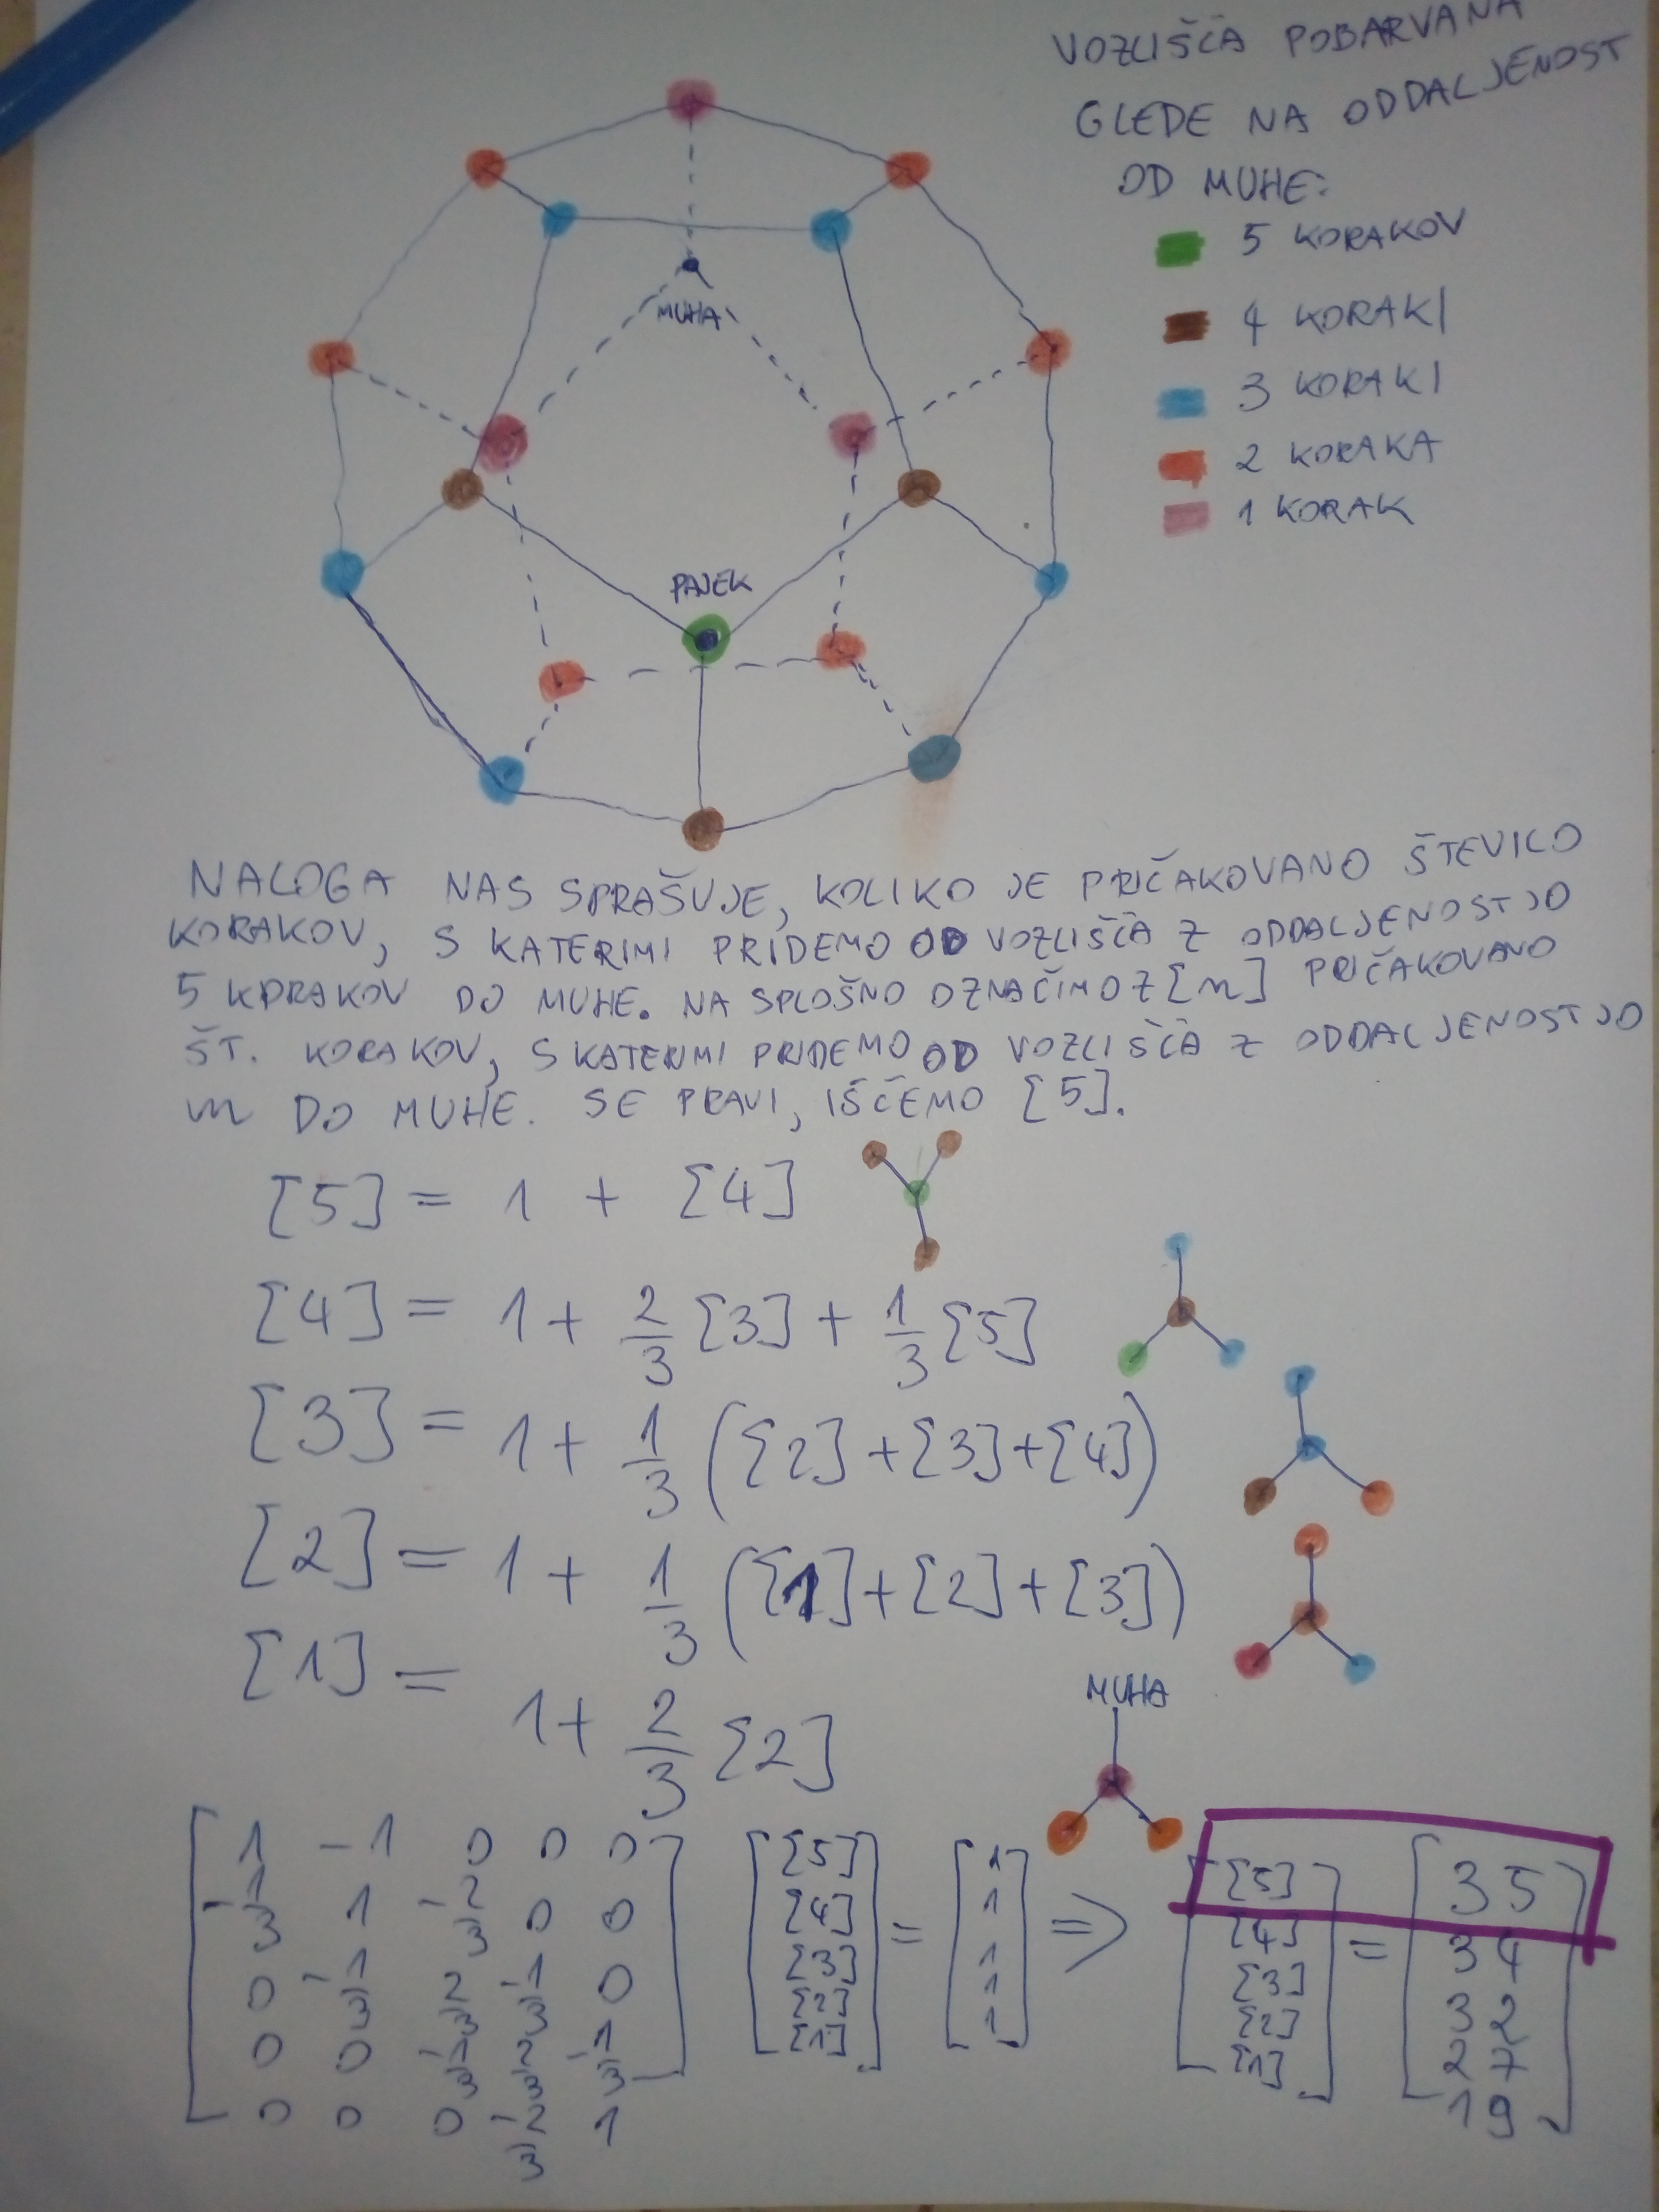 VOZLIŠČA POBARVANA
GLEDE NA ODDALJENOST
OD MUHE:
5 KORAKOV
4 KORAKI
3 KORAKI
2 KORAKA
1 KORAK
MUHA
PAJEK
NALOGA NAS SPRAŠUJE, KOLIKO JE PRIČAKOVANO ŠTEVILO
KORAKOV, S KATERIMI PRIDEMO OD VOZLIŠČA Z ODDALJENOSTJO
5 KORAKOV DO MUHE. NA SPLOŠNO OZNAČIMO Z [n] PRIČAKOVANO
ŠT. KORAKOV, S KATERIMI PRIDEMO OD VOZLIŠČA Z ODDALJENOSTJO
n DO MUHE. SE PRAVI, IŠČEMO [5].
[5] = 1 + [4]
[4] = 1 + 2/3 [3] + 1/3 [5]
[3] = 1 + 1/3 ([2] + [3] + [4])
[2] = 1 + 1/3 ([1] + [2] + [3])
[1] = 1 + 2/3 [2]
MUHA
1 -1 0 0 0 [5] 1 [5] 35
-1/3 1 -2/3 0 0 [4] = 1 => [4] = 34
0 -1/3 2/3 -1/3 0 [3] 1 [3] 32
0 0 -1/3 2/3 -1/3 [2] 1 [2] 27
0 0 0 -2/3 1 [1] 1 [1] 19